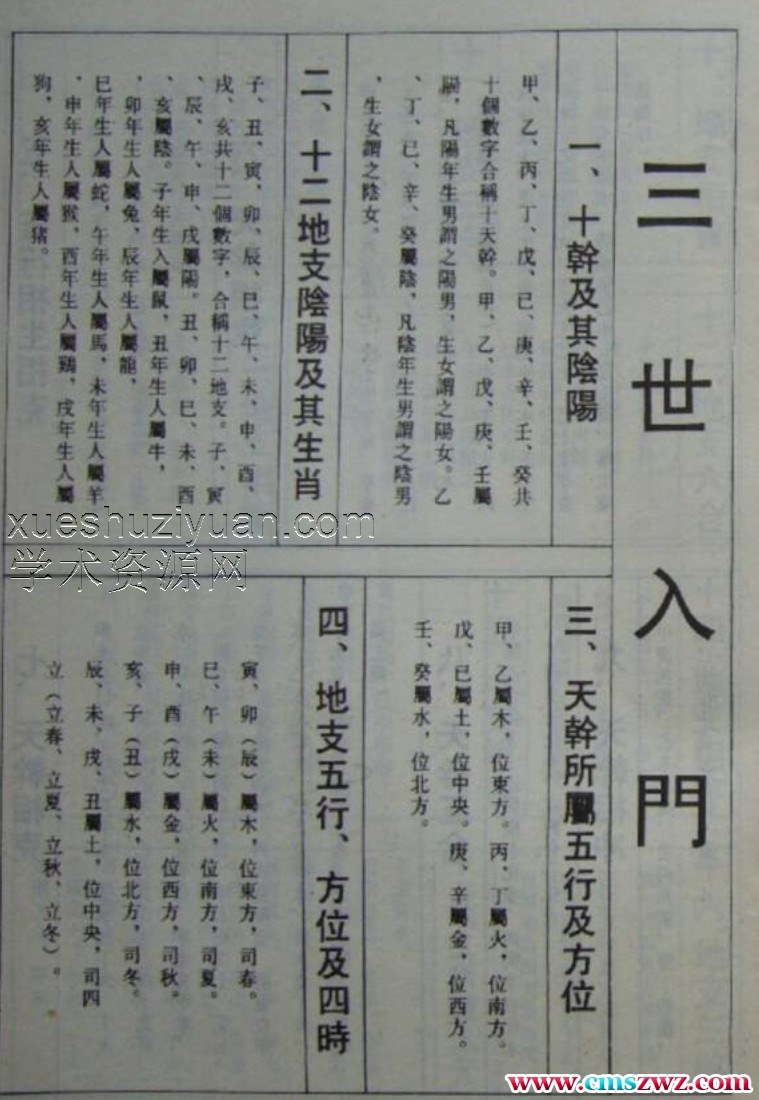 三世入門
一、十幹及其陰陽
甲、乙、丙、丁、戊、已、庚、辛、壬、癸共
十個數字合稱十天幹。甲、乙、戊、庚、壬屬
陽，凡陽年生男謂之陽男，生女謂之陽女。乙
、丁、已、辛、癸屬陰，凡陰年生男謂之陰男
，生女謂之陰女。
二、十二地支陰陽及其生肖
子、丑、寅、卯、辰、巳、午、未、申、酉、
戌、亥共十二個數字，合稱十二地支。子、寅
、辰、午、申、戌屬陽。丑、卯、巳、未、酉
、亥屬陰。子年生入屬鼠，丑年生人屬牛，
，卯年生人屬兔，辰年生人屬龍，
巳年生人屬蛇，午年生人屬馬，未年生人屬羊
，申年生人屬猴，酉年生人屬鷄，戌年生人屬
狗，亥年生人屬猪。
三、天幹所屬五行及方位
甲、乙屬木，位東方。丙、丁屬火，位南方。
戊、已屬土，位中央。庚、辛屬金，位西方。
壬、癸屬水，位北方。
四、地支五行、方位及四時
寅、卯（辰）屬木，位東方，司春。
巳、午（未）屬火，位南方，司夏。
申、酉（戌）屬金，位西方，司秋。
亥、子（丑）屬水，位北方，司冬。
辰、未、戌、丑屬土，位中央，司四
立（立春、立夏、立秋、立冬）。
xueshuziyuan.com
学术资源网
www.cmszwz.com